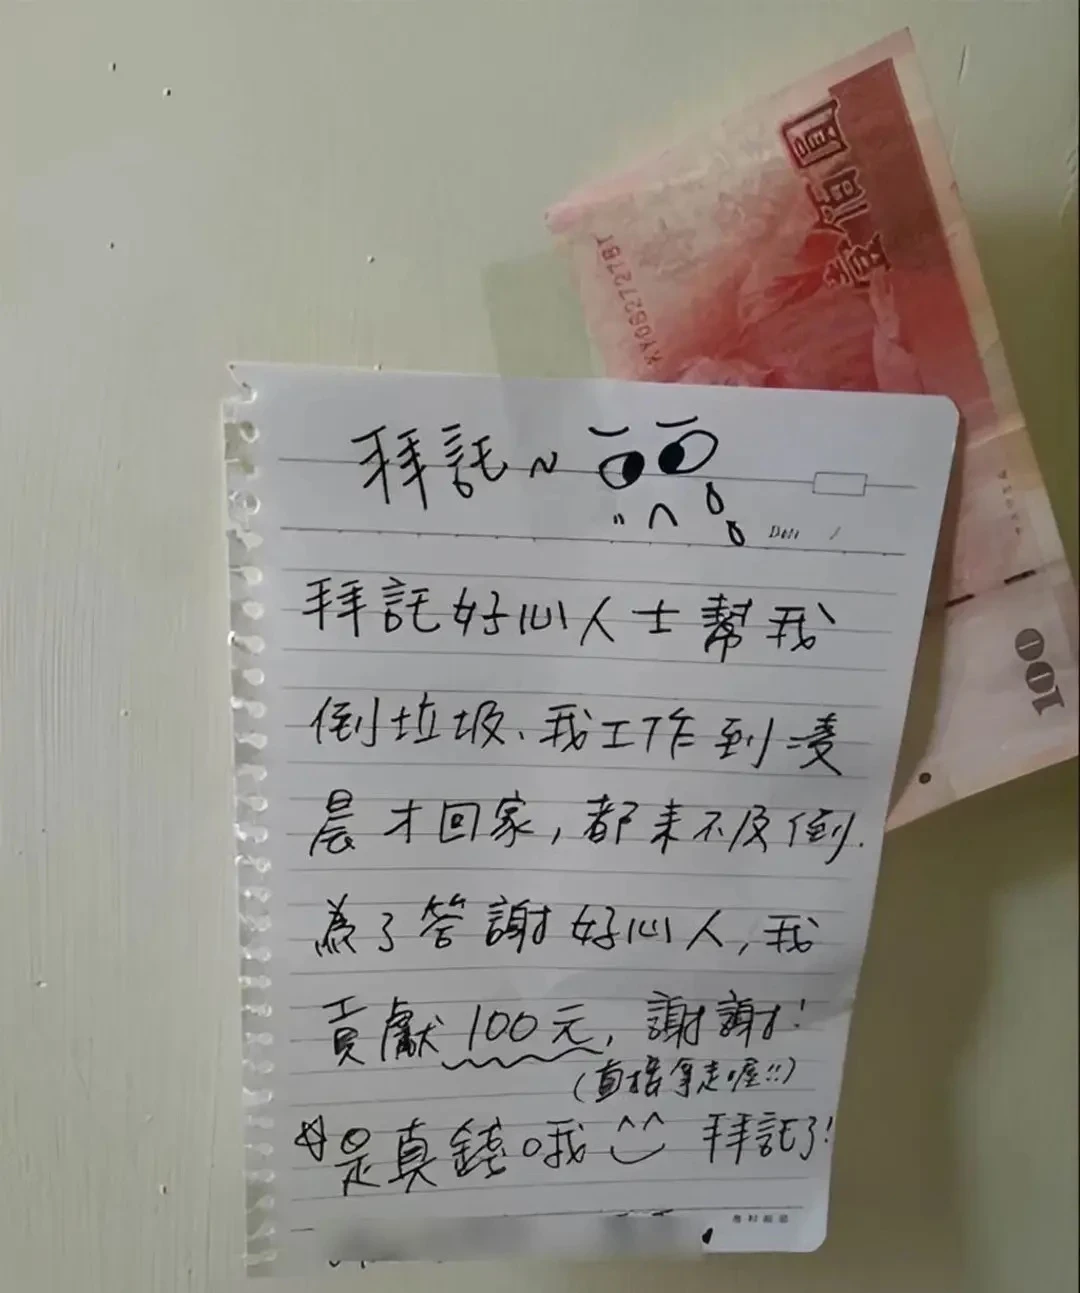 壹佰圓
KY082727BY
100
拜託~
Date /
拜託好心人士幫我
倒垃圾、我工作到凌
晨才回家,都來不及倒.
為了答謝好心人,我
貢獻100元,謝謝!
(直接拿走喔!!)
是真錢哦 拜託了!